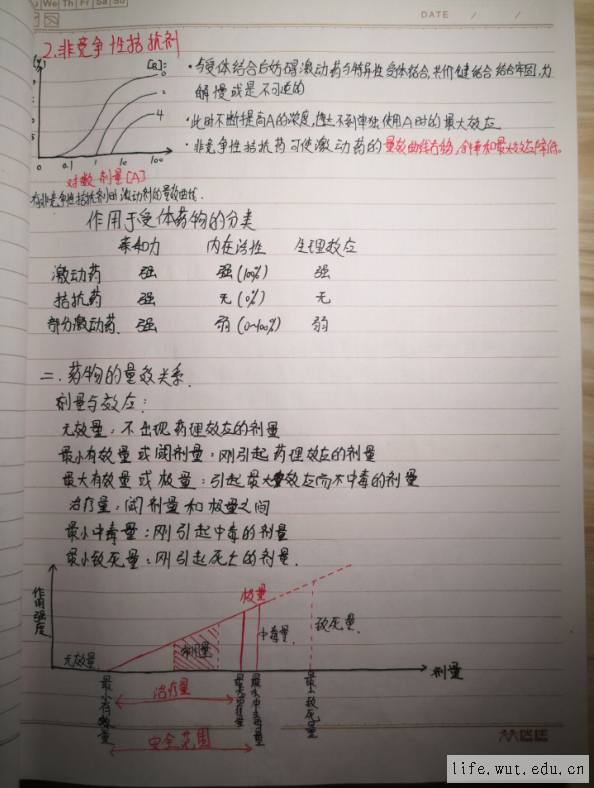 Tu We Th Fr Sa Su
DATE / /
2.非竞争性拮抗剂
(%)
[B]:
0
2
4
0 0.1 1 10 100
对数剂量[A]
有非竞争性拮抗剂时激动剂的量效曲线.
·与受体结合后妨碍激动药与特异性受体结合,共价键结合 结合牢固,为
解慢或是不可逆的
·此时不断提高A的浓度,也达不到单独使用A时的最大效应
·非竞争性拮抗药可使激动药的量效曲线右移,斜率和最大效应降低。
作用于受体药物的分类
亲和力 内在活性 生理效应
激动药 强 强(100%) 强
拮抗药 强 无(0%) 无
部分激动药. 强 弱(0~100%) 弱
二.药物的量效关系.
剂量与效应:
无效量:不出现药理效应的剂量
最小有效量或阈剂量:刚引起药理效应的剂量
最大有效量或极量:引起最大效应而不中毒的剂量
治疗量:阈剂量和极量之间
最小中毒量:刚引起中毒的剂量
最小致死量:刚引起死亡的剂量.
作用强度
极量
常用量
中毒量
致死量
无效量
剂量
最小有效量
治疗量
最大有效量
最小中毒量
最小致死量
安全范围
life.wut.edu.cn